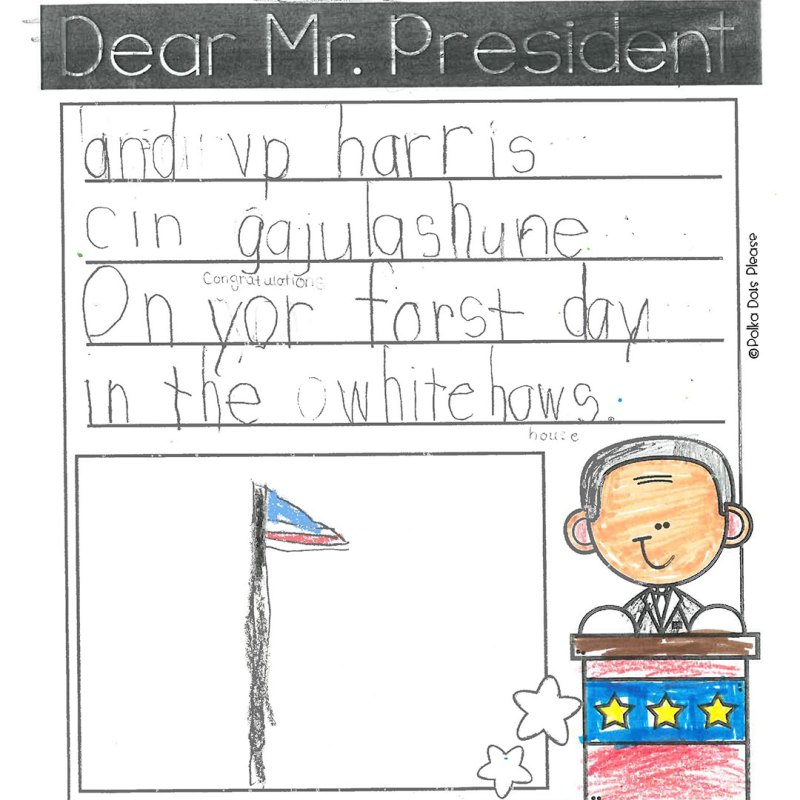 Dear Mr. President
and vp harris
cin gajulashune
Congratulations
On yor forst day
in the whitehows.
house
©Polka Dots Please